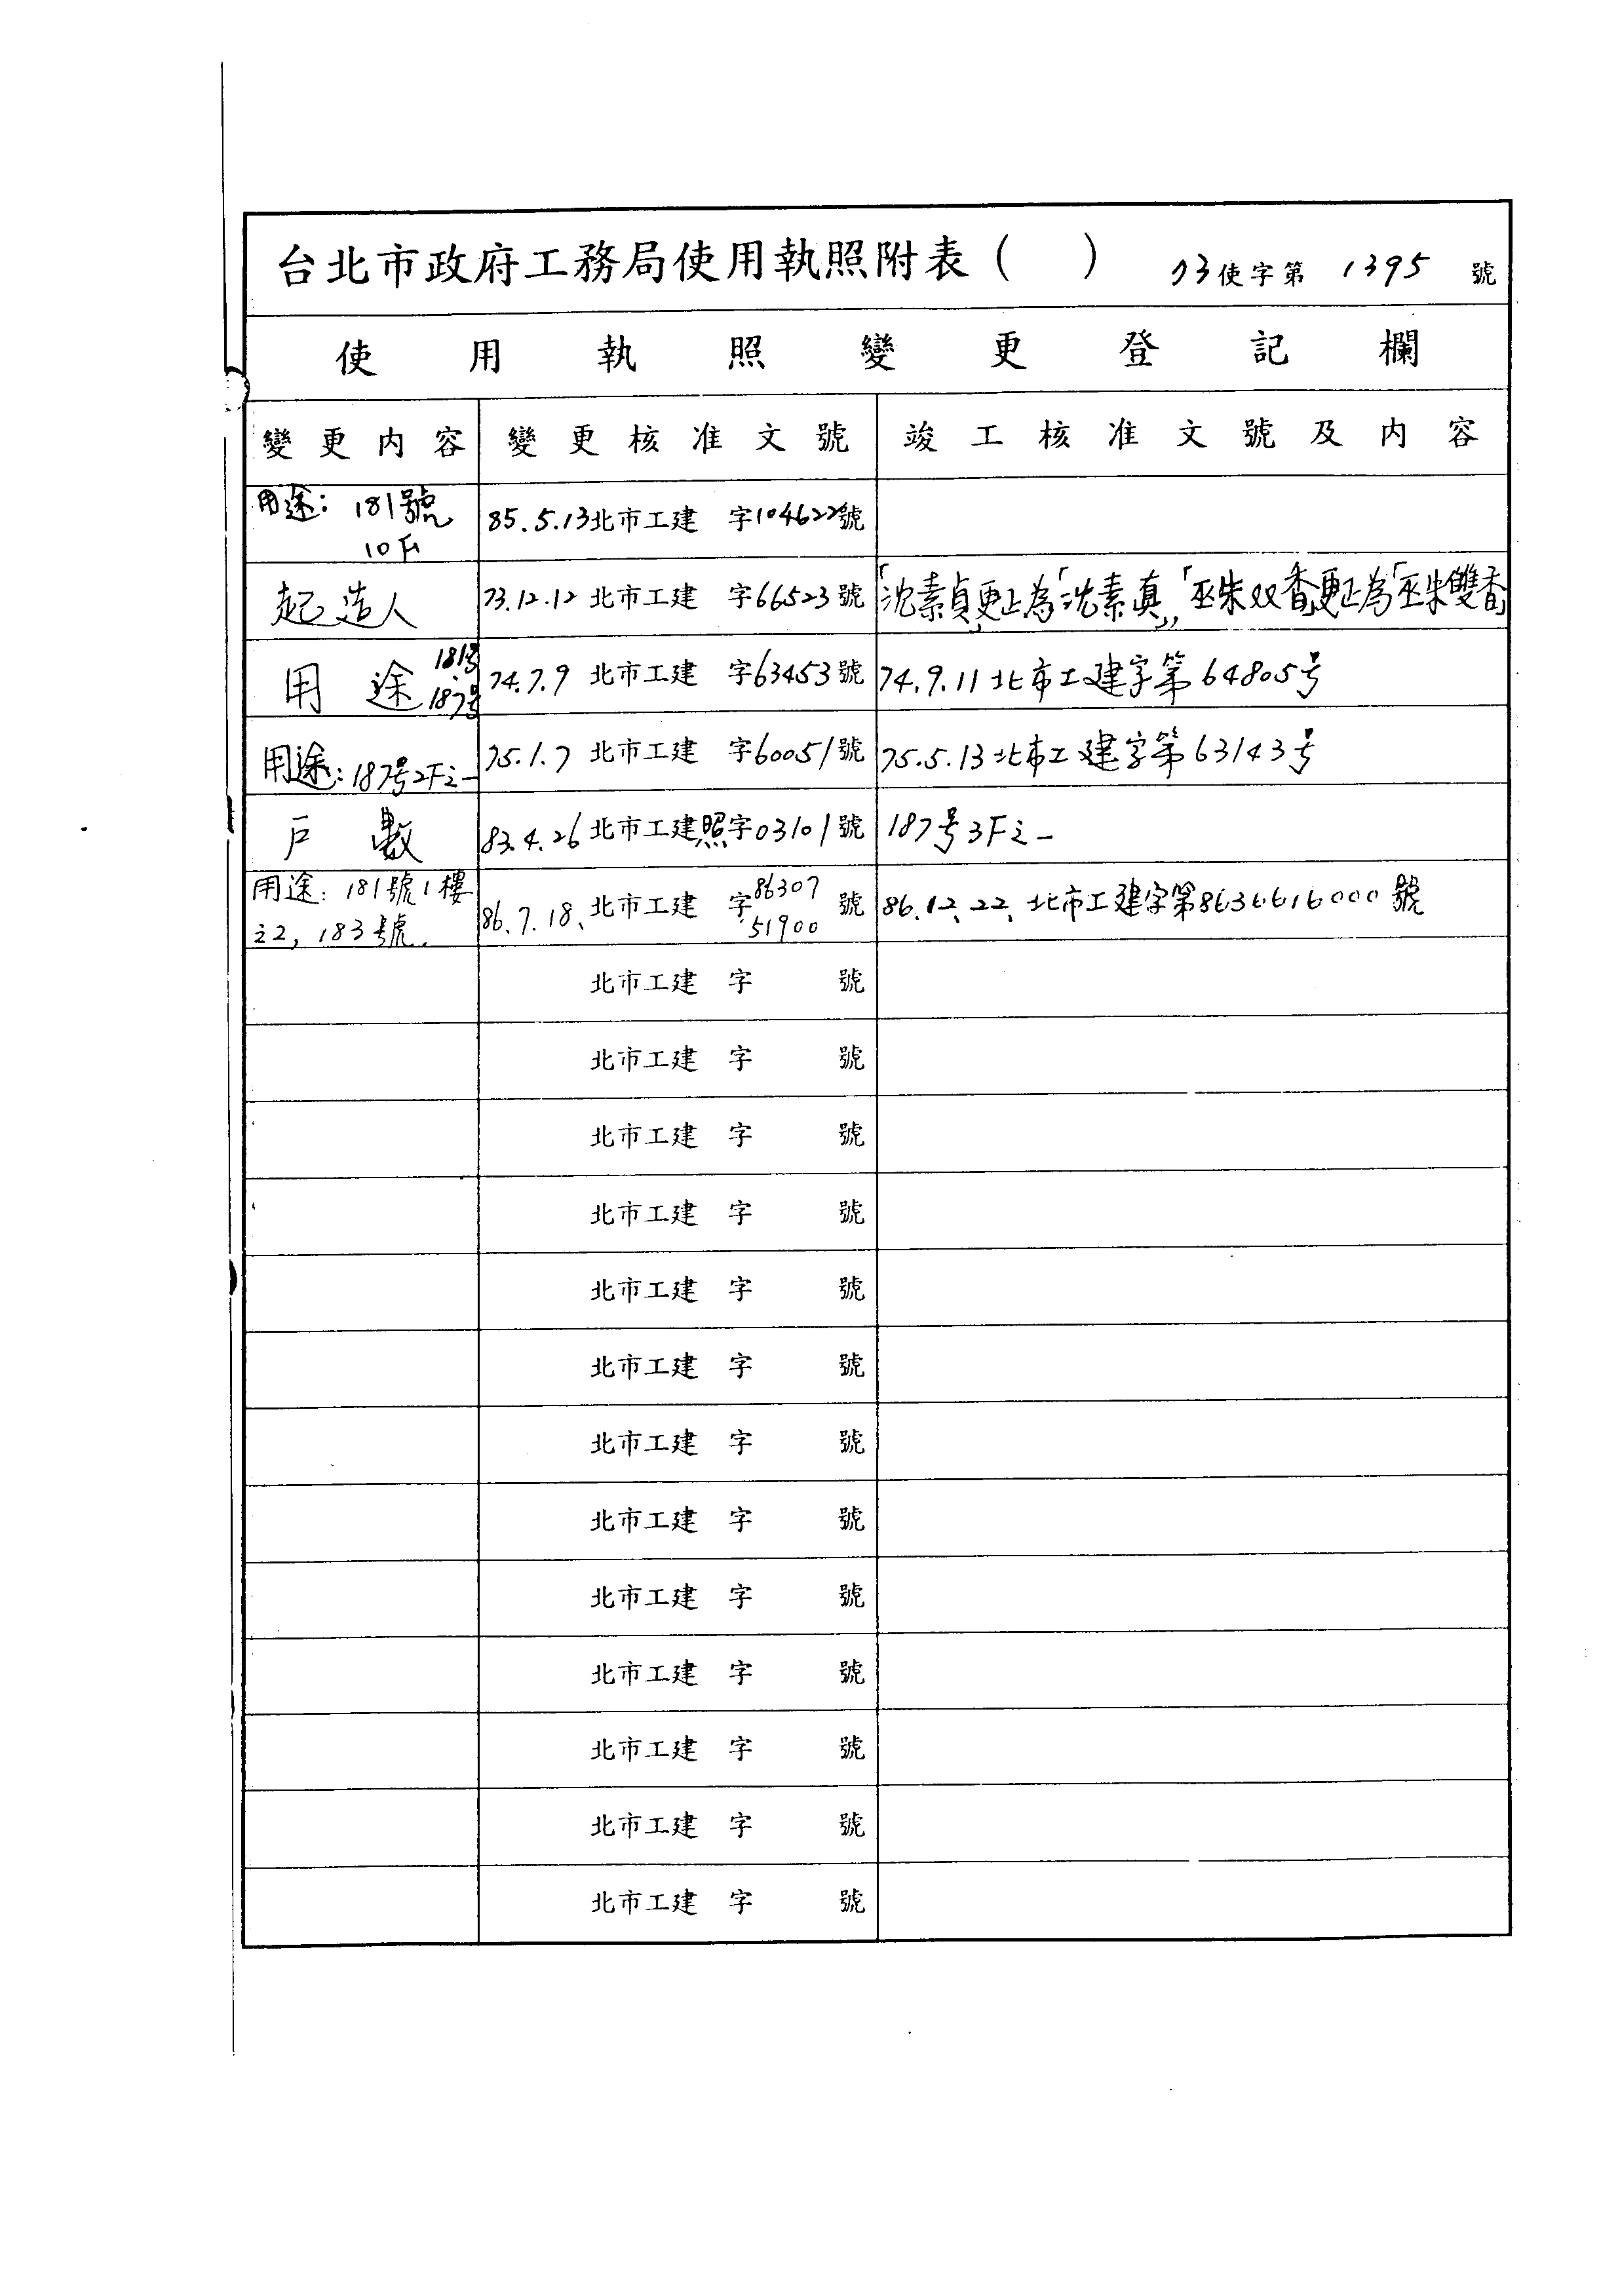 台北市政府工務局使用執照附表（　）　73使字第　1395　號
使用執照變更登記欄
變更內容　變更核准文號　竣工核准文號及內容
用途：181號
10F　85.5.13北市工建　字104622號
起造人　73.12.12　北市工建　字66523號　「沈素貞」更正為「沈素真」,「巫朱双香」更正為「巫朱雙香」
用途　181号
187号　74.7.9　北市工建　字63453號　74.9.11北市工建字第64805号
用途：187号2F之一　75.1.7　北市工建　字60051號　75.5.13北市工建字第63143号
戶數　83.4.26　北市工建照字03101號　187号3F之一
用途：181號1樓
之2，183號.　86.7.18、北市工建　字8630751900號　86.12.22、北市工建字第8636616000號
北市工建　字　號
北市工建　字　號
北市工建　字　號
北市工建　字　號
北市工建　字　號
北市工建　字　號
北市工建　字　號
北市工建　字　號
北市工建　字　號
北市工建　字　號
北市工建　字　號
北市工建　字　號
北市工建　字　號